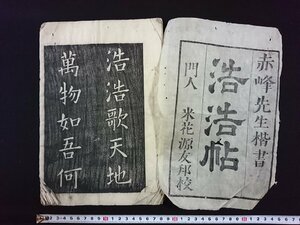 赤峰先生楷書
浩浩帖
門人 米花源友郁校
浩浩歌天地
萬物如吾何